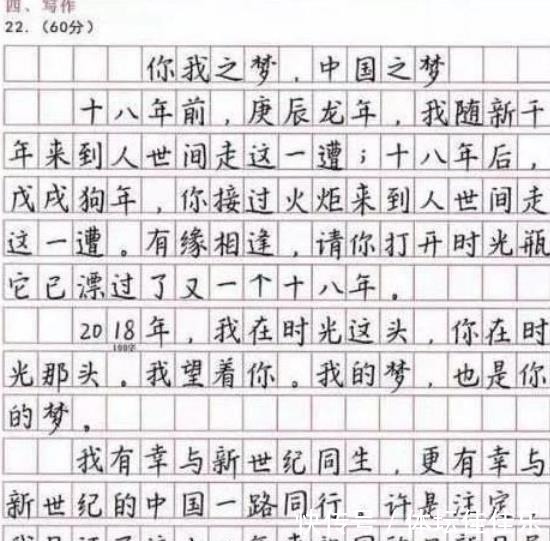 四、写作
22.（60分）
你我之梦，中国之梦
十八年前，庚辰龙年，我随新千
年来到人世间走这一遭；十八年后，
戊戌狗年，你接过火炬来到人世间走
这一遭。有缘相逢，请你打开时光瓶
它已漂过了又一个十八年。
2018年，我在时光这头，你在时
100字
光那头。我望着你。我的梦，也是你
的梦。
我有幸与新世纪同生，更有幸与
新世纪的中国一路同行 许是注定